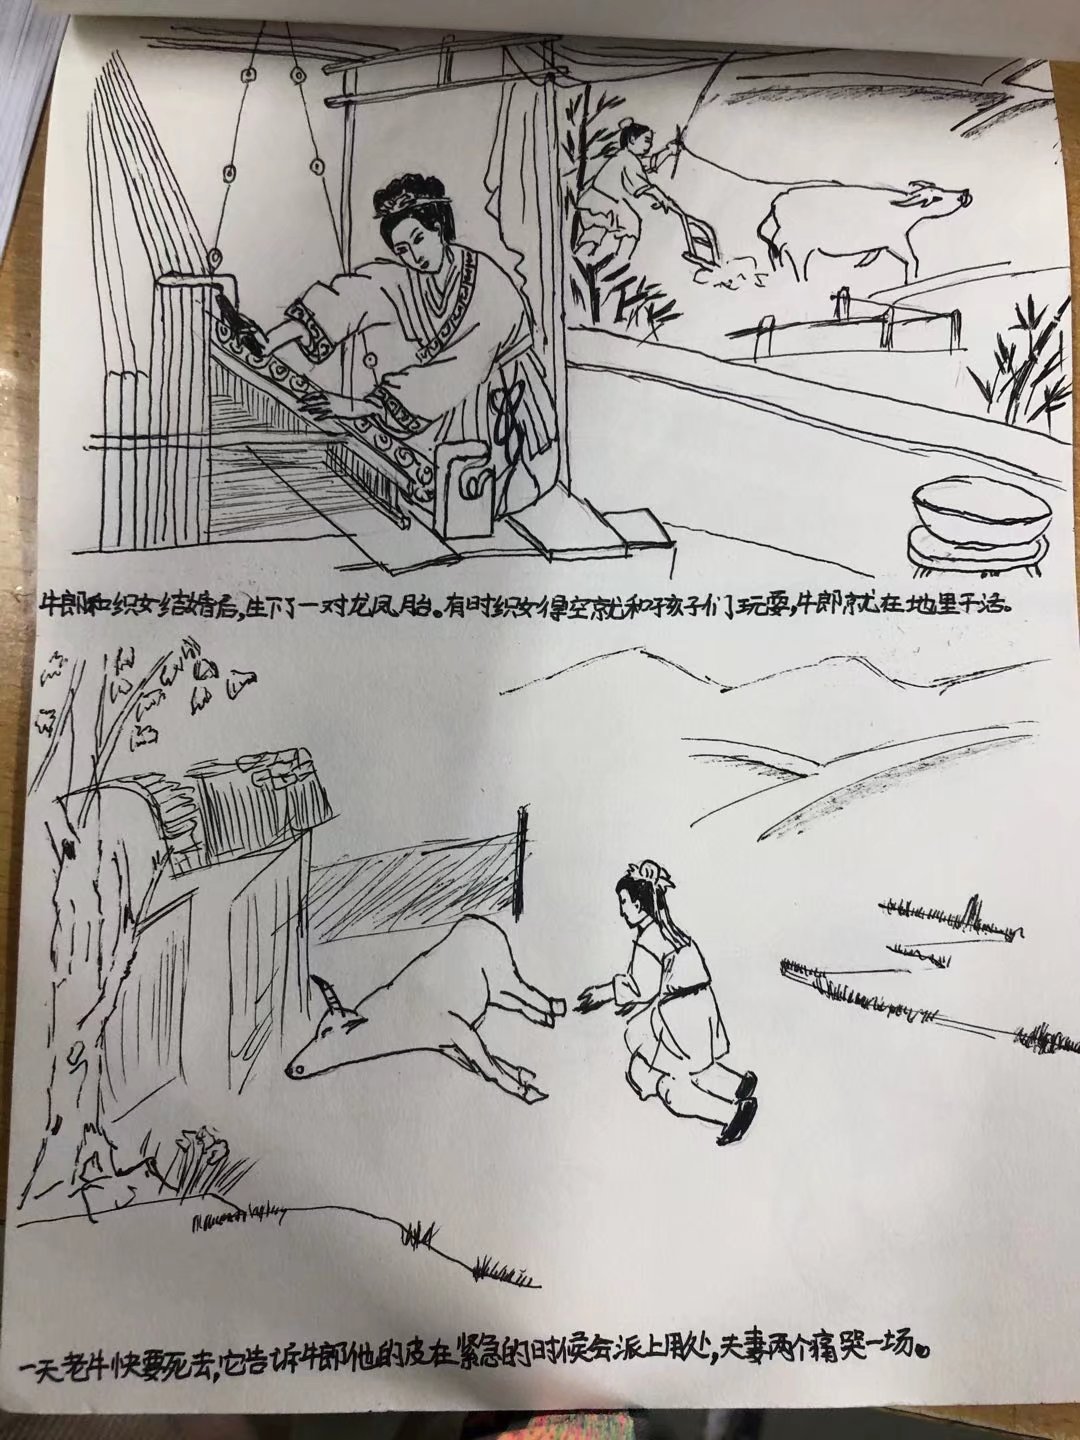 牛郎和织女结婚后,生下了一对龙凤胎。有时织女得空就和孩子们玩耍,牛郎就在地里干活。
一天老牛快要死去,它告诉牛郎他的皮在紧急的时候会派上用处,夫妻两个痛哭一场。